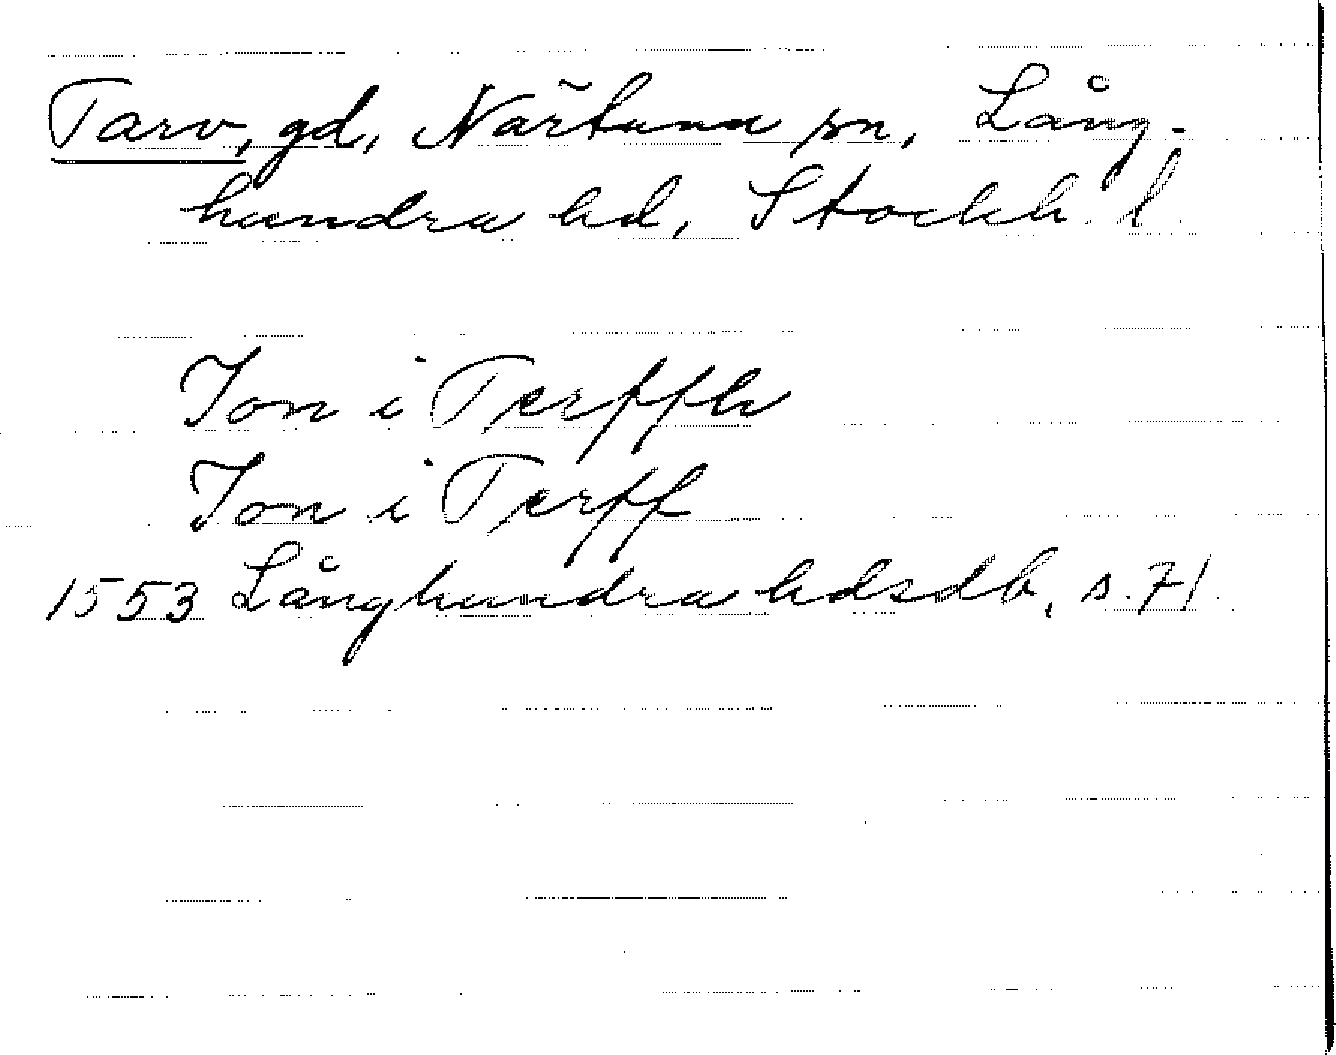 Tarv, gd, Närtuna sn, Lång-
hundra hd, Stockh. l.
Jon i Terffh
Jon i Terff
1553 Långhundra hdsdb, s. 71.